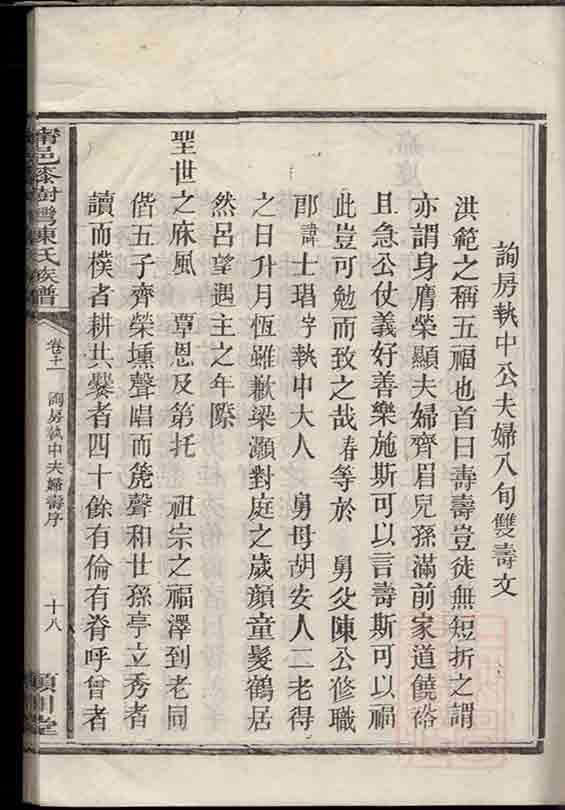 詢房執中公夫婦八旬雙壽文
洪範之稱五福也首曰壽壽豈徒無短折之謂
亦謂身膺榮顯夫婦齊眉兒孫滿前家道饒裕
且急公仗義好善樂施斯可以言壽斯可以福
此豈可勉而致之哉春等於　舅父陳公修職
郎諱士琩字執中大人　舅母胡安人二老得
之日升月恆雖歉梁灝對庭之歲顏童髮鶴居
然呂望遇主之年際
聖世之庥風　覃恩及第托　祖宗之福澤到老同
偕五子齊榮壎聲唱而箎聲和廿孫亭立秀者
讀而樸者耕共爨者四十餘有倫有脊呼曾者
甯邑漆樹灣陳氏族譜
卷十一　詢房執中夫婦壽序
十八
潁川堂